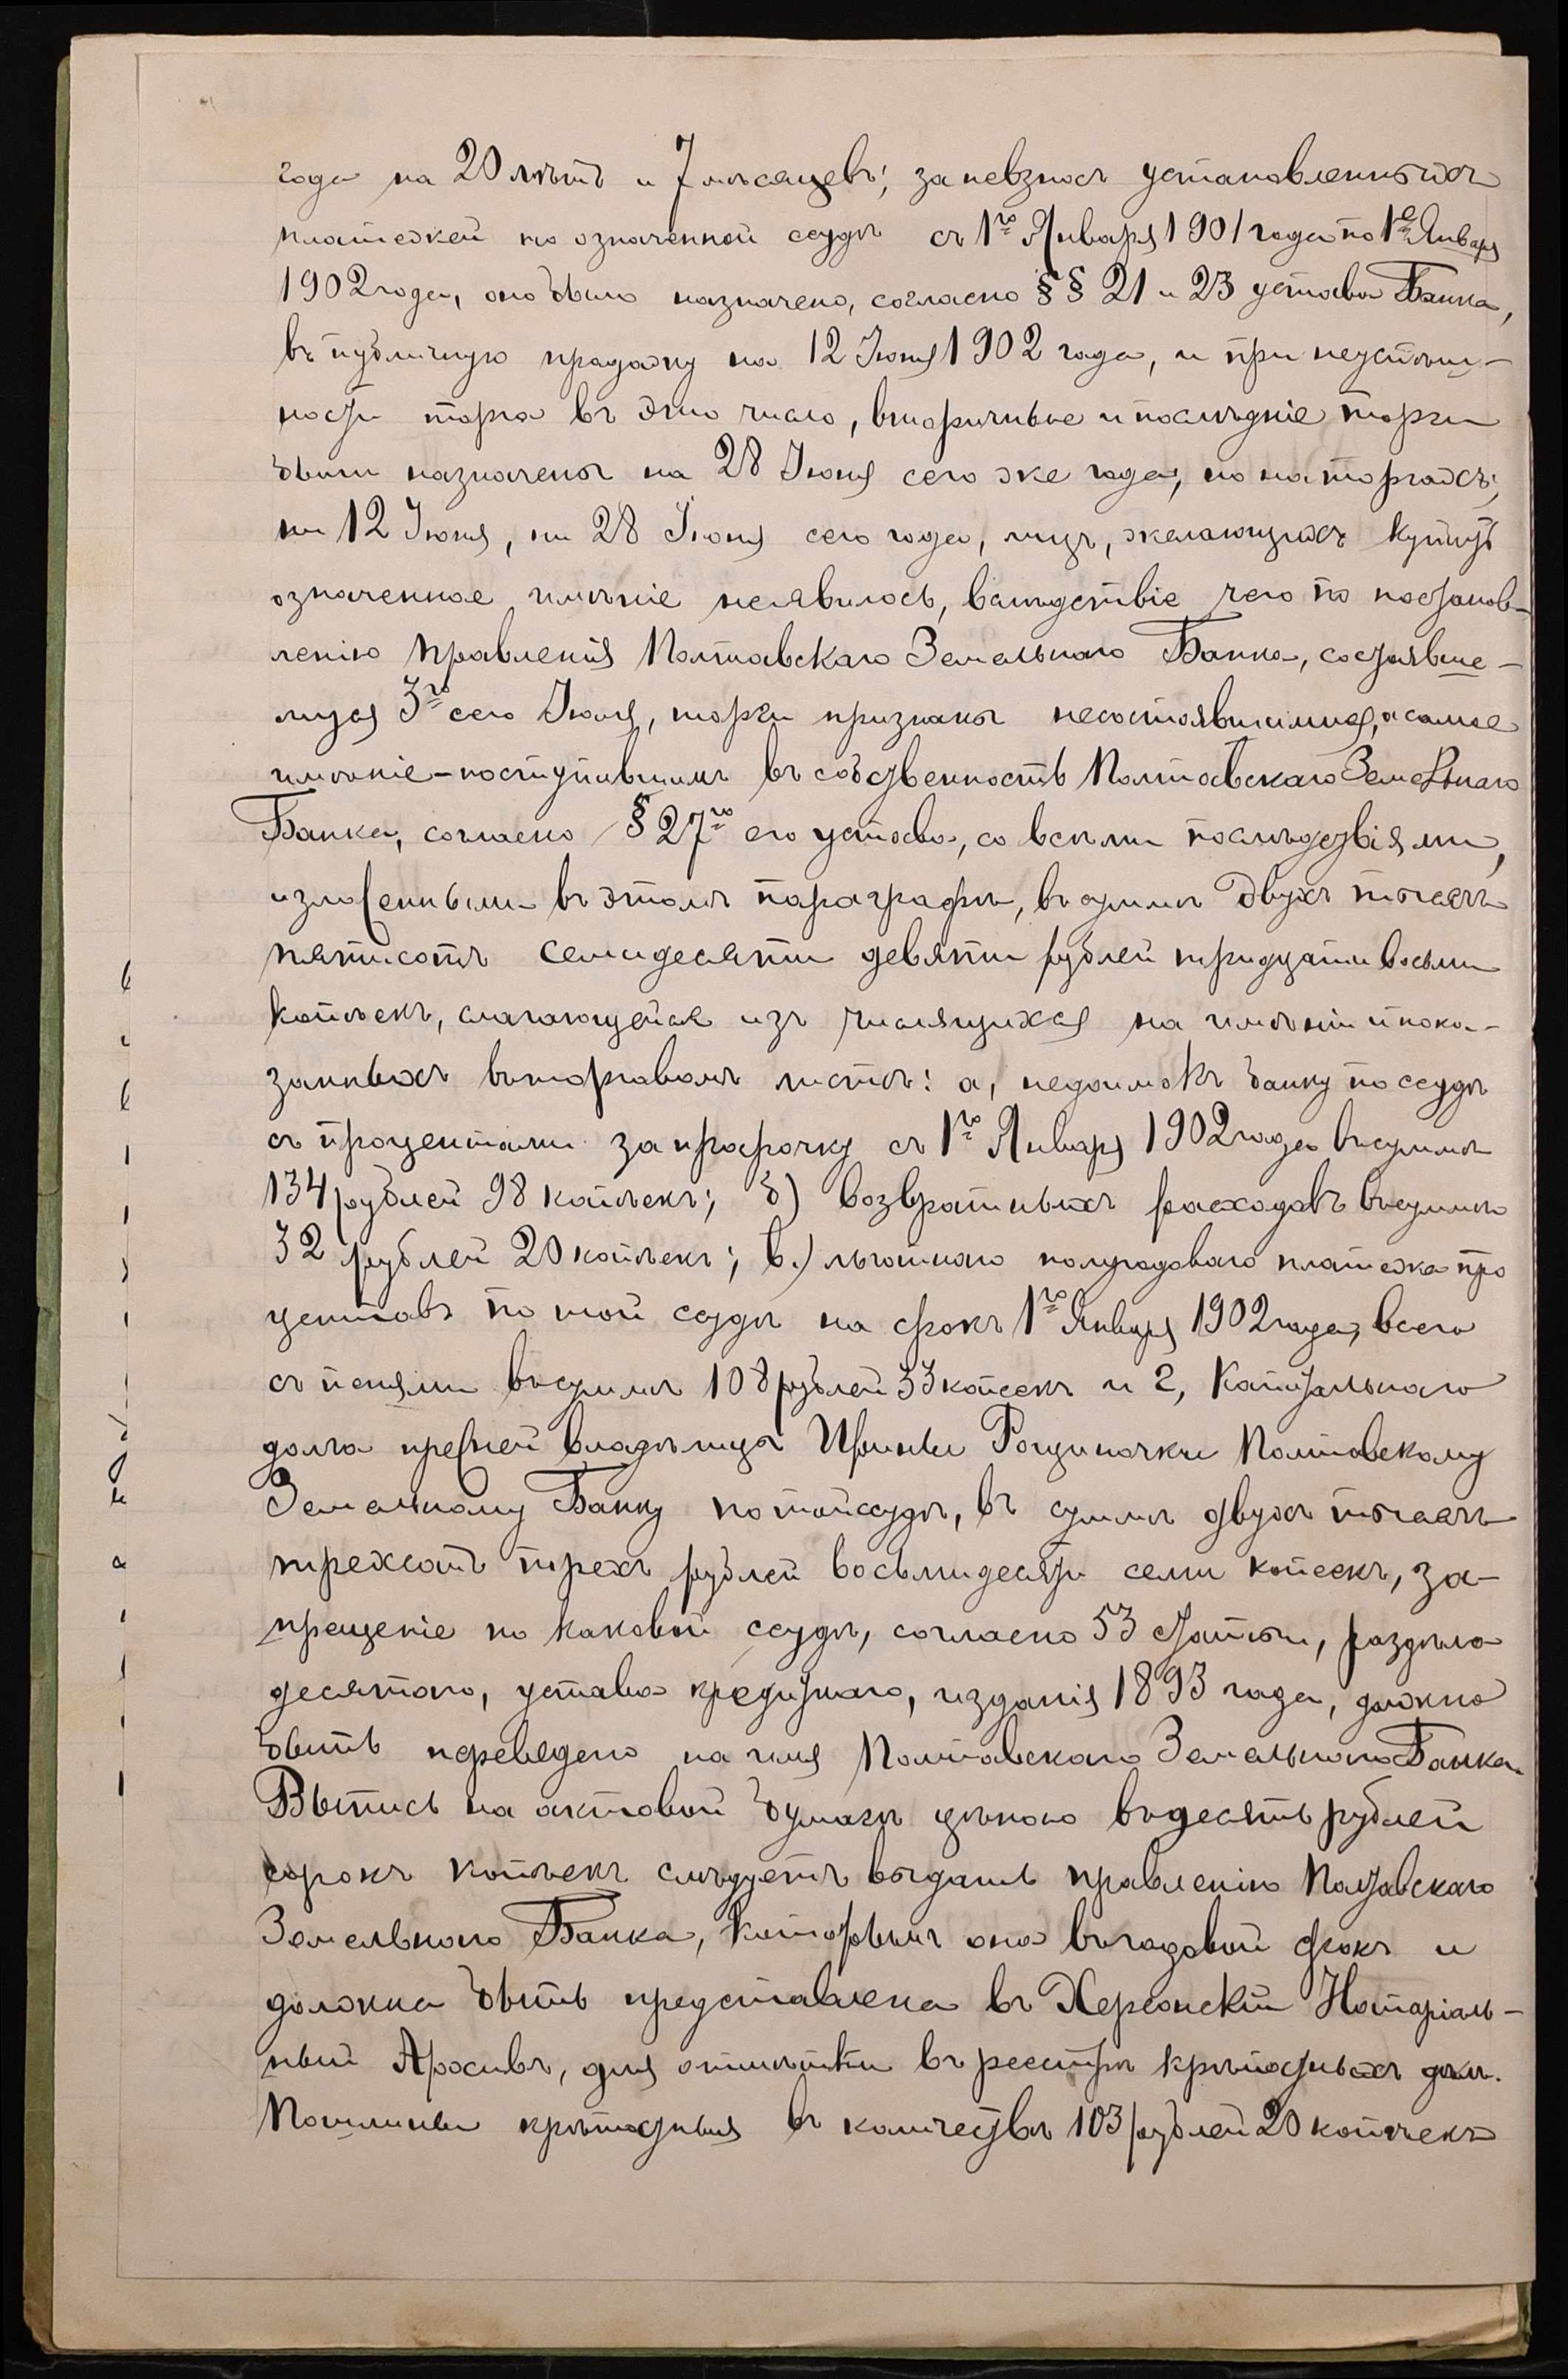 года на 20 лѣтъ и 7 мѣсяцевъ; за невзносъ установленныхъ
платежей по означенной ссудѣ съ 1го Января 1901 года по 1е Января
1902 года, оно было назначено, согласно §§ 21 и 23 устава Банка,
въ публичную продажу на 12 Іюня 1902 года, и при неуспѣш-
ности торга въ это число, вторичные и послѣдніе торги
были назначены на 28 Іюня сего же года, но на торгахъ,
ни 12 Іюня, ни 28 Іюня сего года, лицъ, желающихъ купить
означенное имѣніе неявилось, вслѣдствіе чего по постанов-
ленію Правленія Полтавскаго Земельнаго Банка, состоявше-
муся 3го сего Іюля, торги признаны несостоявшимися, а самое
имѣніе-поступившимъ въ собственность Полтавскаго Земельнаго
Банка, согласно § 27го его устава, со всѣми послѣдствіями,
изложенными въ этомъ параграфѣ, въ суммѣ двухъ тысячъ
пятисотъ семидесяти девяти рублей тридцати восьми
копѣекъ, слагающейся изъ числящихся на имѣніи и пока-
занныхъ въ торговомъ листѣ: а, недоимокъ банку по ссудѣ
съ процентами за просрочку съ 1го Января 1902 года въ суммѣ
134 рублей 98 копѣекъ; б) возвратныхъ расходовъ въ суммѣ
32 рублей 20 копѣекъ; в.) льготнаго полугодоваго платежа про
центовъ по той ссудѣ на срокъ 1го Января 1902 года, всего
съ пенями въ суммѣ 108 рублей 33 копеекъ и г, Капитальнаго
долга прежней владѣлицы Ирины Полтавскому
Земельному Банку по той ссудѣ, въ суммѣ двухъ тысячъ
трехсотъ трехъ рублей восьмидесяти семи копеекъ, за-
прещеніе по каковой ссудѣ, согласно 53 статьи, раздѣла
десятаго, устава кредитнаго, изданія 1893 года, должно
быть переведено на имя Полтавскаго Земельнаго Банка.
Выпись на актовой бумагѣ цѣною въ десять рублей
сорокъ копѣекъ слѣдуетъ выдать правленію Полтавскаго
Земельнаго Банка, которымъ она въ годовой срокъ и
должна быть представлена въ Херсонскій Нотаріаль-
ный Архивъ, для отмѣтки въ реестрѣ крѣпостныхъ дѣлъ.
Пошлины крѣпостныя въ количествѣ 103 рублей 20 копѣекъ